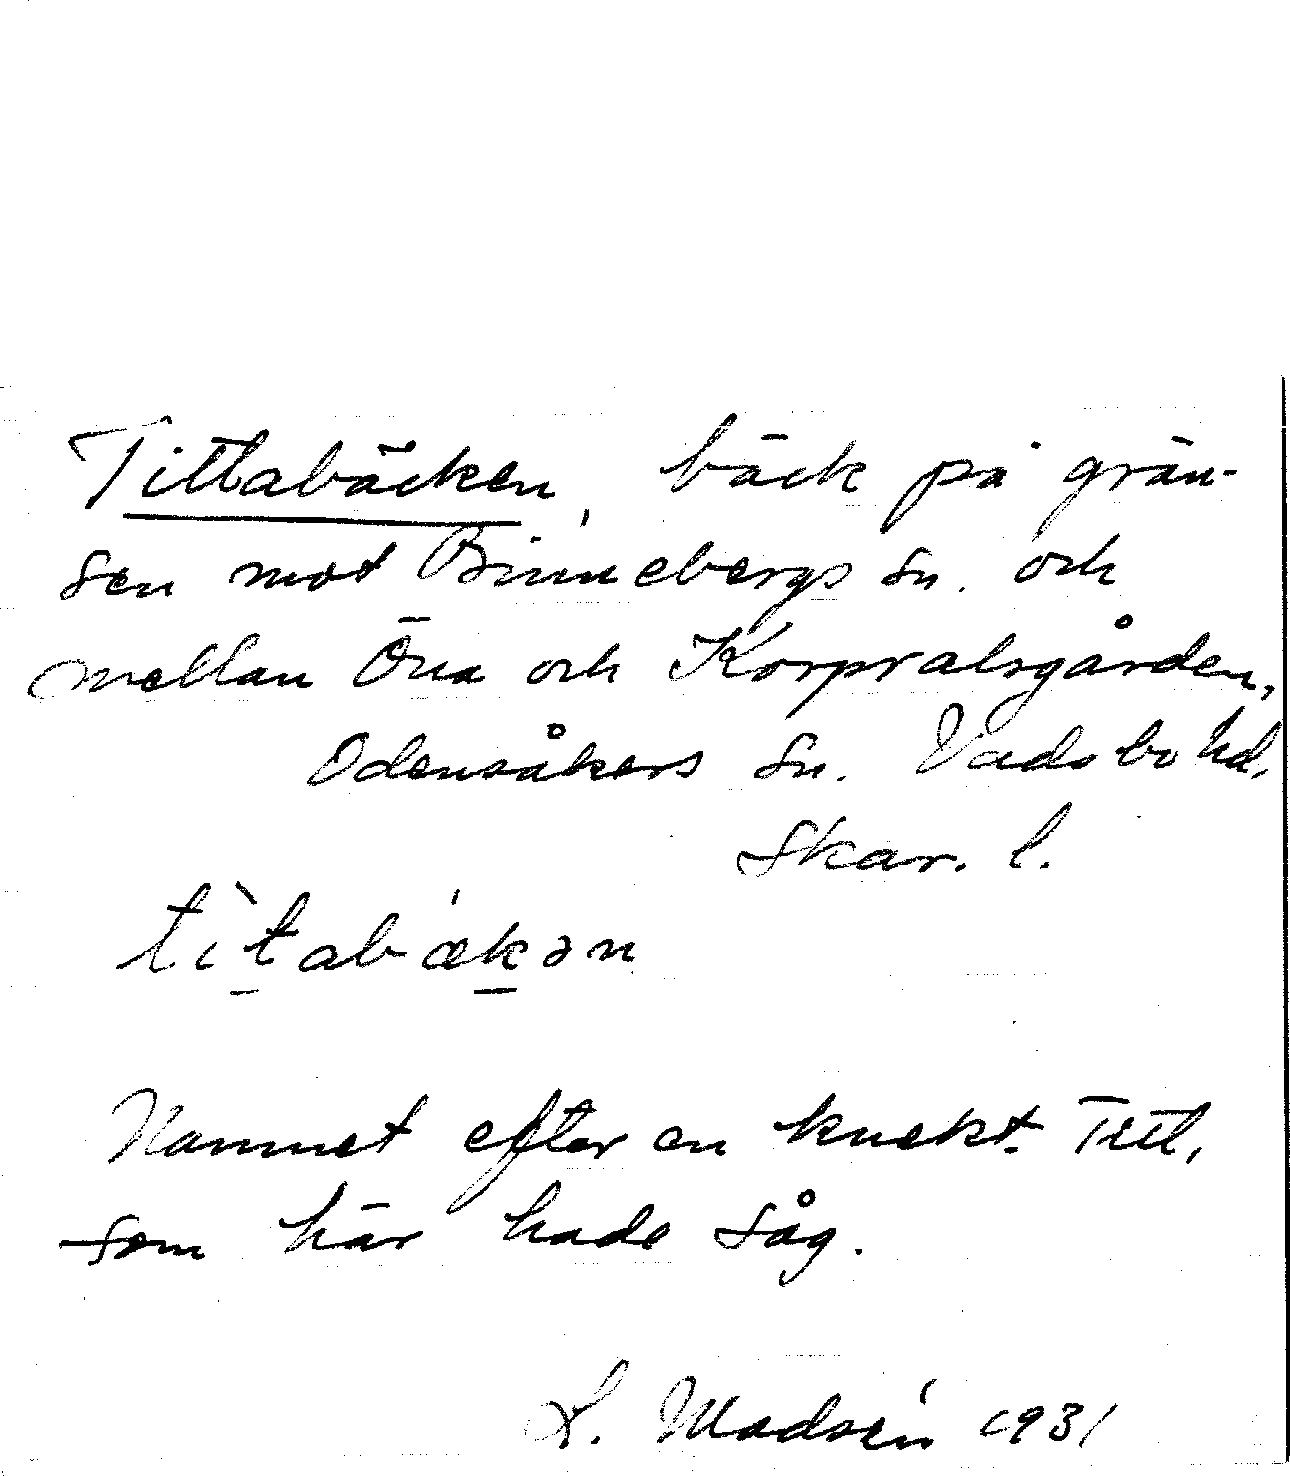 Tittabäcken, bäck på grän-
sen mot Binnebergs sn. och
mellan Öna och Korpralsgården,
Odensåkers sn. Vadsbo hd,
Skar. l.
tìtabǽkən
Namnet efter en knekt Titt,
som här hade såg.
L. Modsén 1931